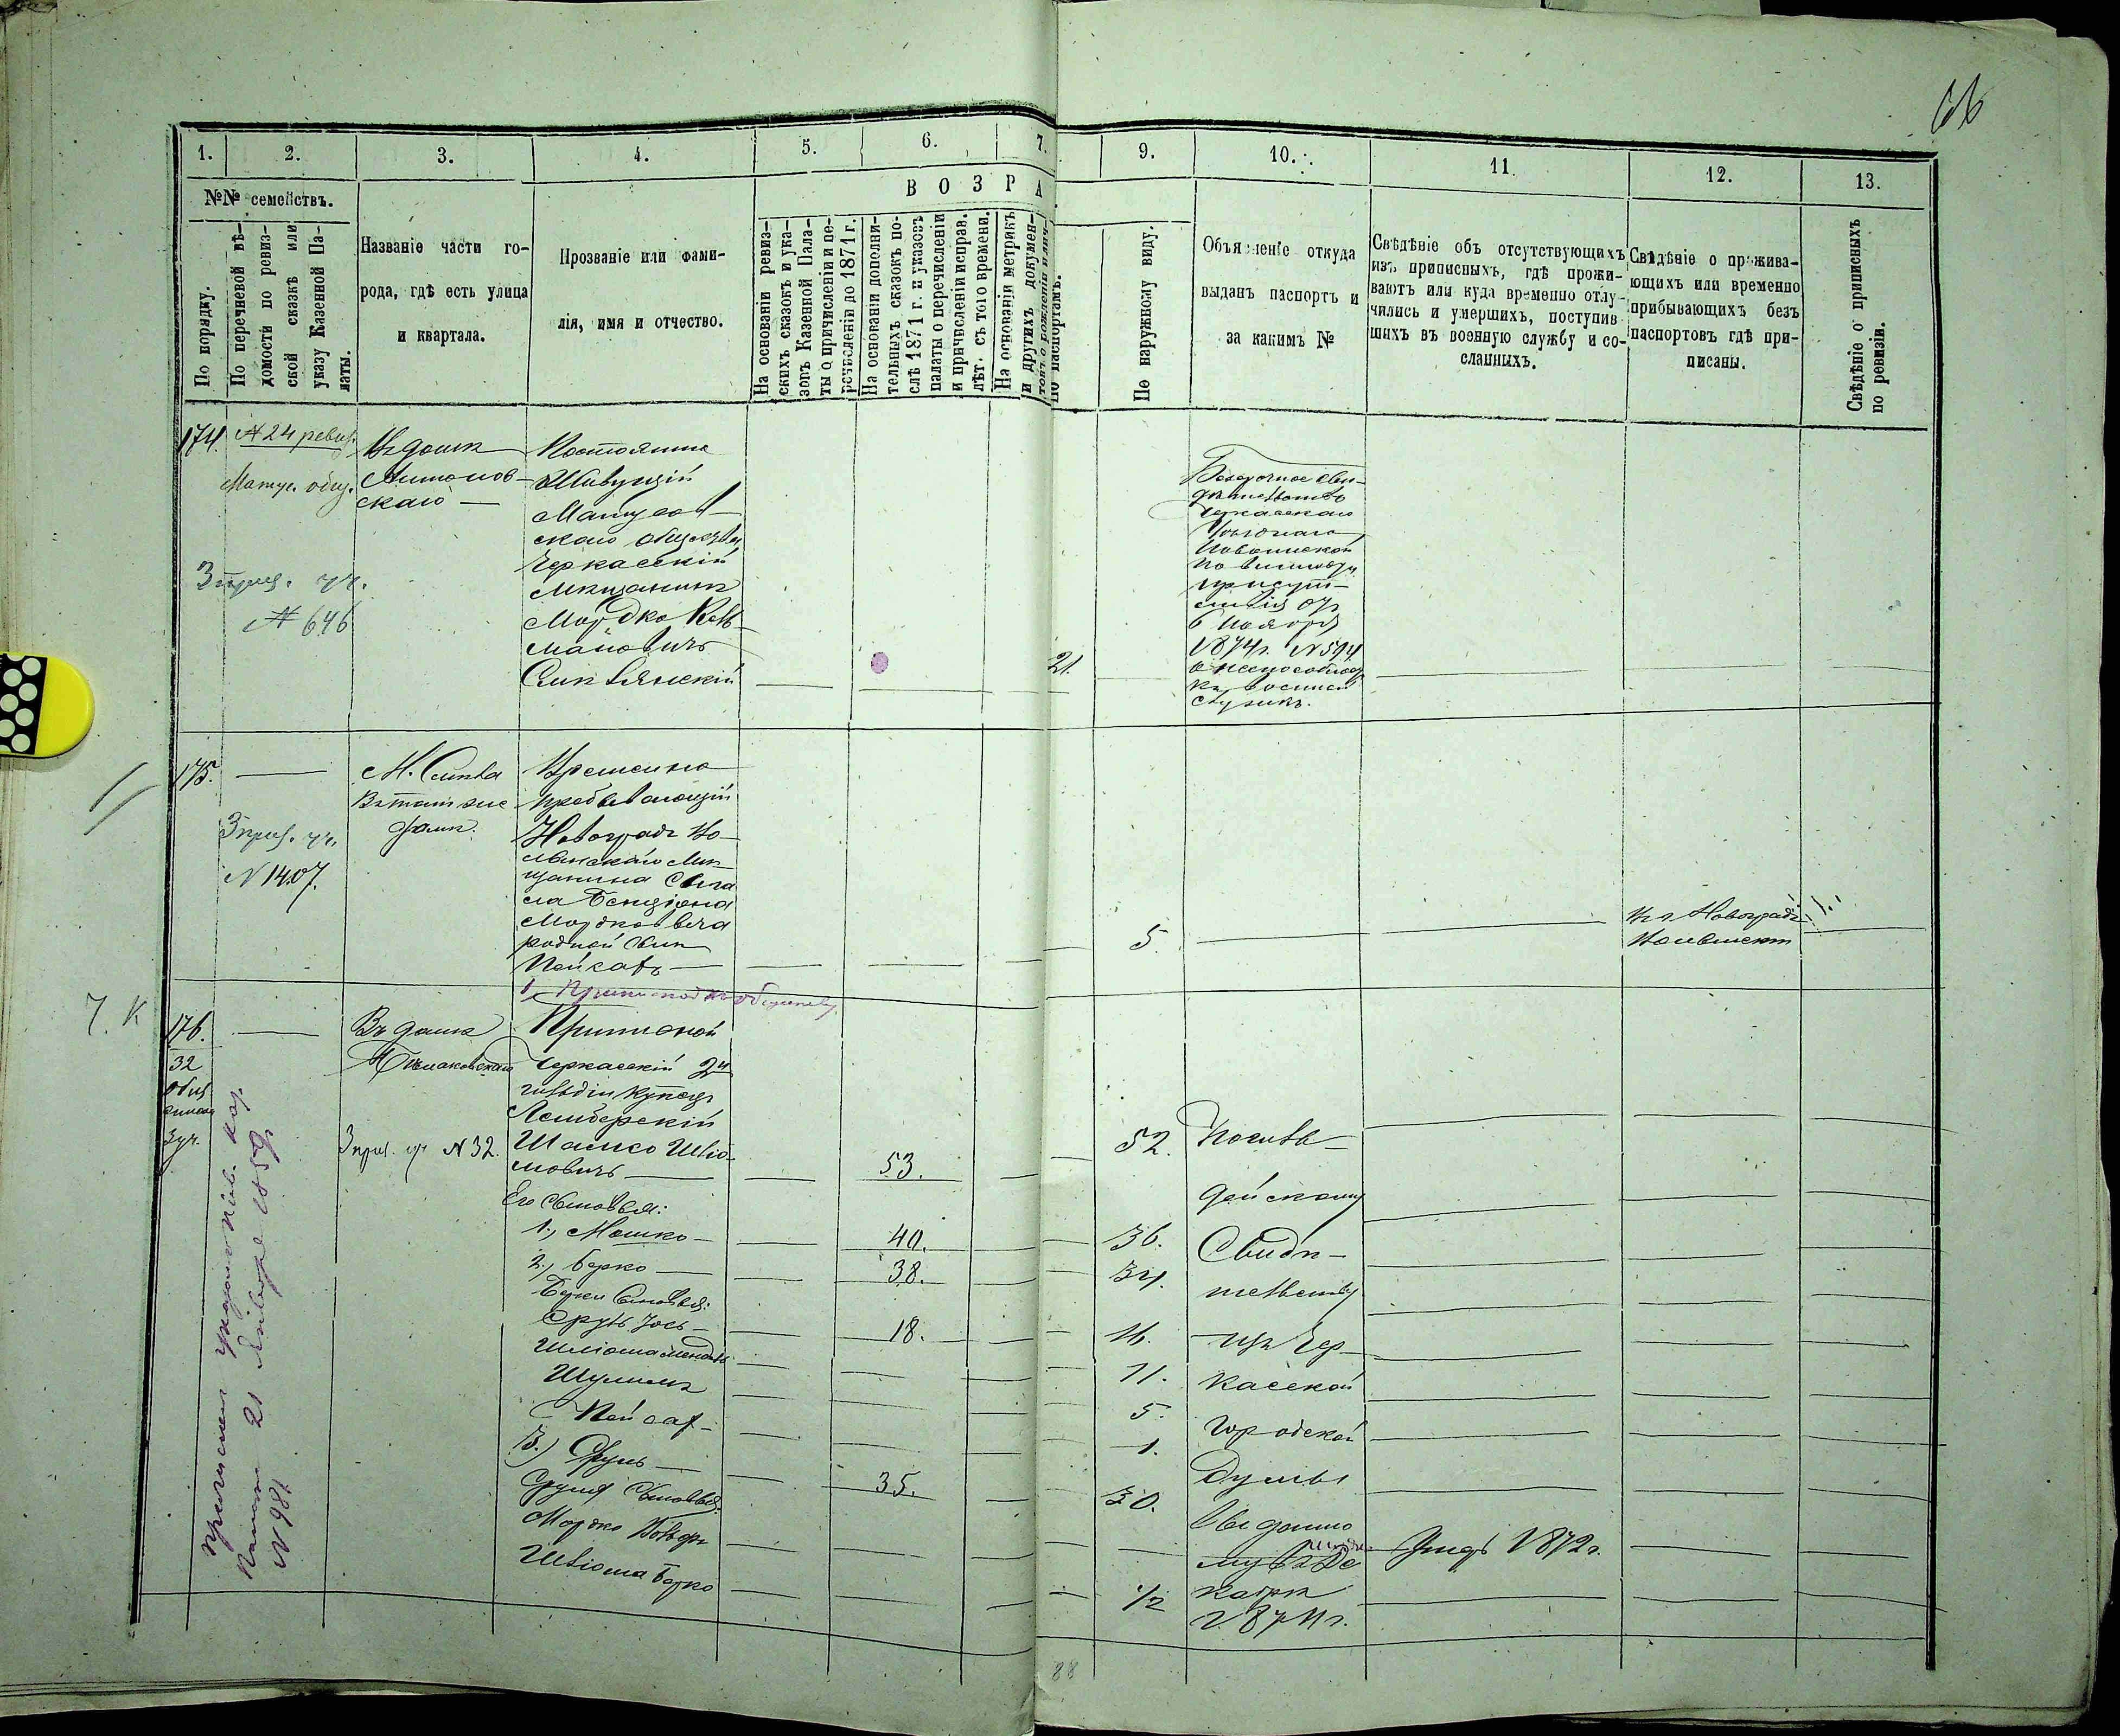 66
1. 2. 3. 4. 5. 6. 7. 9. 10. 11. 12. 13.
№№ семействъ.
ВОЗРА
По порядку.
По перечневой вѣ-
домости по ревиз-
ской сказкѣ или
указу Казенной Па-
латы.
Названіе части го-
рода, гдѣ есть улица
и квартала.
Прозваніе или фами-
лія, имя и отчество.
На основаніи ревиз-
скихъ сказокъ и ука-
зовъ Казенной Пала-
ты о причисленіи и пе-
речисленіи до 1871 г.
На основаніи дополни-
тельныхъ сказокъ по-
слѣ 1871 г. и указовъ
палаты о перечисленіи
и причисленіи исправ.
лѣт. съ того времени.
На основаніи метрикъ
и другихъ докумен-
товъ о рожденіи и лич-
по паспортамъ.
По наружному виду.
Объясненіе откуда
выданъ паспортъ и
за какимъ №
Свѣдѣніе объ отсутствующихъ
изъ приписныхъ, гдѣ прожи-
ваютъ или куда временно отлу-
чились и умершихъ, поступив
шихъ въ военную службу и со-
сланныхъ.
Свѣдѣніе о прожива-
ющихъ или временно
прибывающихъ безъ
паспортовъ гдѣ при-
писаны.
Свѣдѣніе о приписныхъ
по ревизіи.
174.
№ 24 ревиз.
Матус. общ.
3 приз. уч.
№ 646
Въ домѣ
Антонов-
скаго
Постоянно
Живущій
Матусов-
скаго общества
Черкасскій
Мѣщанинъ
Мордко Кель-
мановичъ
Смилянскій
21.
Безсрочное сви-
дѣтельство
Черкасскаго
Уѣзднаго
По воинской
повинности
присут-
ствія отъ
6 Ноября
1874 г. № 594
о неспособнос.
къ военной
службѣ.
175.
3 приз. уч.
№ 1407.
М. Смѣла
Въ томъ же
домѣ.
Временно
пребывающій
Новоградъ Во-
лынскаго Мѣ-
щанина
Бенціона
Мордковича
родной сынъ
Пейсахъ
5.
Въ г. Новоградъ
Волынскъ
7. К
176.
32
общ.
3 уч.
3 приз. уч. № 32.
Въ домѣ
Приписной
Черкасскій 2й
гильдіи Купецъ
Лембергскій
Шамсо Шліо-
мовичъ
53.
52.
Его Сыновья:
1., Мошко
40.
36.
2., Берко
38.
34.
Берки Сыновья:
Сруль Іось
18.
16.
Шліома Мендель
11.
Шулимъ
5.
Пейсах
1.
3.) Сруль
35.
30.
Сруля Сыновья:
Мордко Вольфъ
Шліома Берко
1/2
По сель-
дейскому
Свидѣ-
тельству
изъ Чер-
касской
Городской
Думы
выданно
му въ Де
кабрѣ
1874 г.
Умеръ 1872 г.
Палаты 21 Января 1859 г.
№ 981
88